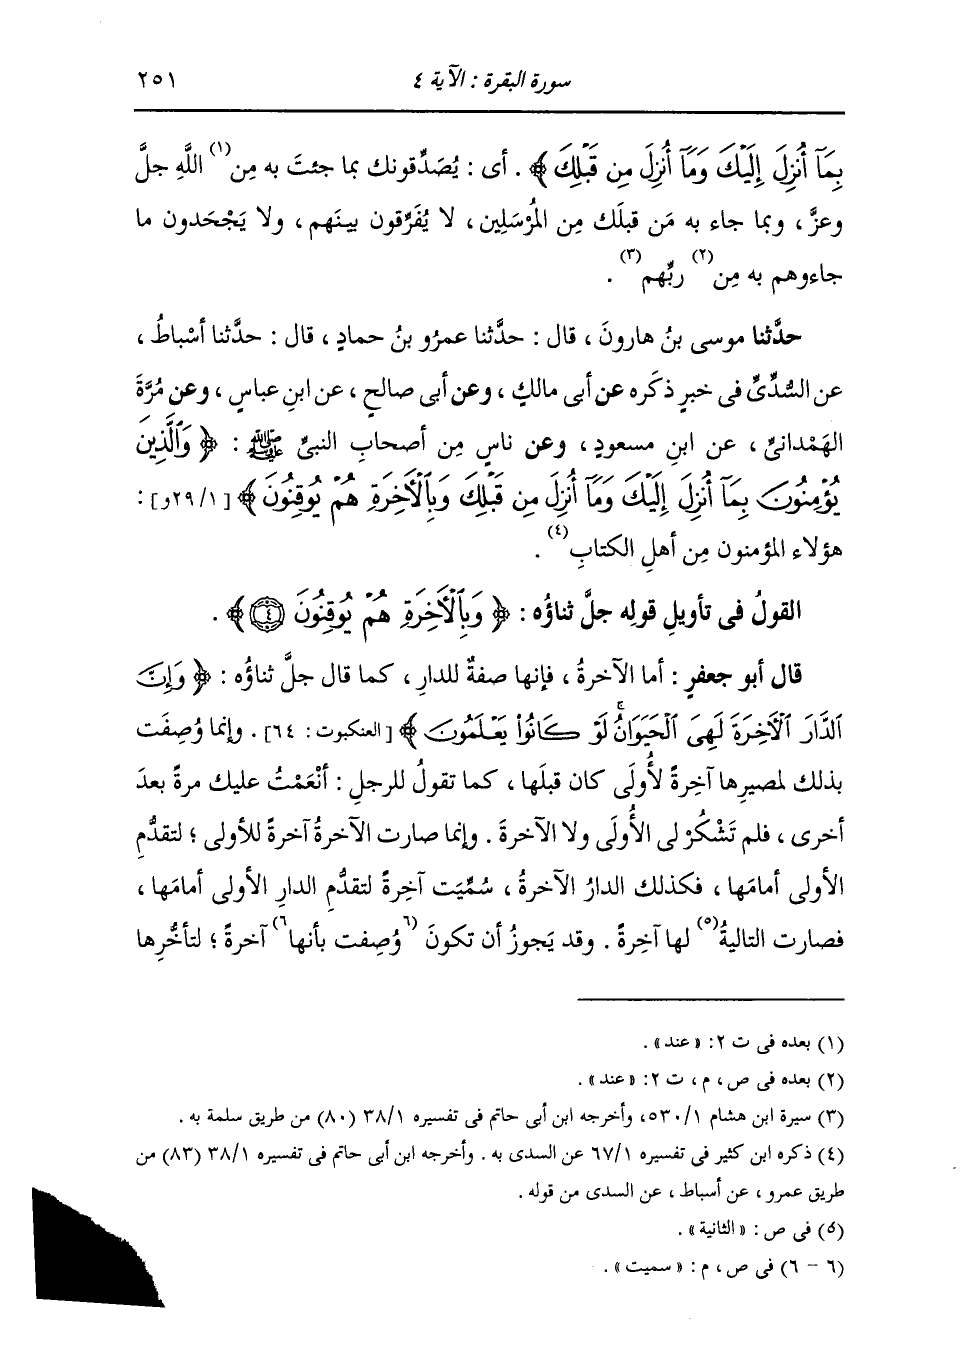 سورة البقرة : الآية ٤
٢٥١
بِمَآ أُنزِلَ إِلَيْكَ وَمَآ أُنزِلَ مِن قَبْلِكَ ﴾ . أى : يُصَدِّقونك بما جئتَ به مِن(١) اللَّهِ جلَّ
وعزَّ ، وبما جاء به مَن قبلَك مِن المُرْسَلِين ، لا يُفَرِّقون بينَهم ، ولا يَجْحَدون ما
جاءوهم به مِن(٢) ربِّهم(٣) .
حدَّثنا موسى بنُ هارونَ ، قال : حدَّثنا عمرُو بنُ حمادٍ ، قال : حدَّثنا أسْباطُ ،
عن السُّدِّىِّ فى خبرٍ ذكَره عن أبى مالكٍ ، وعن أبى صالحٍ ، عن ابنِ عباسٍ ، وعن مُرَّةَ
الهَمْدانىِّ ، عن ابنِ مسعودٍ ، وعن ناسٍ مِن أصحابِ النبىِّ ﷺ : ﴿ وَٱلَّذِينَ
يُؤْمِنُونَ بِمَآ أُنزِلَ إِلَيْكَ وَمَآ أُنزِلَ مِن قَبْلِكَ وَبِٱلْأَخِرَةِ هُمْ يُوقِنُونَ ﴾ [٢٩/١و] :
هؤلاء المؤمنون مِن أهلِ الكتابِ(٤) .
القولُ فى تأويلِ قولِه جلَّ ثناؤُه : ﴿ وَبِٱلْأَخِرَةِ هُمْ يُوقِنُونَ ۝٤ ﴾ .
قال أبو جعفرٍ : أما الآخرةُ ، فإنها صفةٌ للدارِ ، كما قال جلَّ ثناؤُه : ﴿ وَإِنَّ
ٱلدَّارَ ٱلْأَخِرَةَ لَهِىَ ٱلْحَيَوَانُۚ لَوْ كَانُوا۟ يَعْلَمُونَ ﴾ [العنكبوت : ٦٤] . وإنما وُصِفَت
بذلك لمصيرِها آخِرةً لأُولَى كان قبلَها ، كما تقولُ للرجلِ : أنْعَمْتُ عليك مرةً بعدَ
أخرى ، فلم تَشْكُرْ لى الأُولَى ولا الآخرةَ . وإنما صارت الآخرةُ آخرةً للأولى ؛ لتقدُّمِ
الأولى أمامَها ، فكذلك الدارُ الآخرةُ ، سُمِّيَت آخِرةً لتقدُّمِ الدارِ الأولى أمامَها ،
فصارت التاليةُ(٥) لها آخِرةً . وقد يَجوزُ أن تكونَ (٦وُصِفت بأنها٦) آخرةً ؛ لتأخُّرِها
(١) بعده فى ت ٢ : « عند » .
(٢) بعده فى ص ، م ، ت ٢ : « عند » .
(٣) سيرة ابن هشام ٥٣٠/١ ، وأخرجه ابن أبى حاتم فى تفسيره ٣٨/١ (٨٠) من طريق سلمة به .
(٤) ذكره ابن كثير فى تفسيره ٦٧/١ عن السدى به . وأخرجه ابن أبى حاتم فى تفسيره ٣٨/١ (٨٣) من
طريق عمرو ، عن أسباط ، عن السدى من قوله .
(٥) فى ص : « الثانية » .
(٦ - ٦) فى ص ، م : « سميت » .